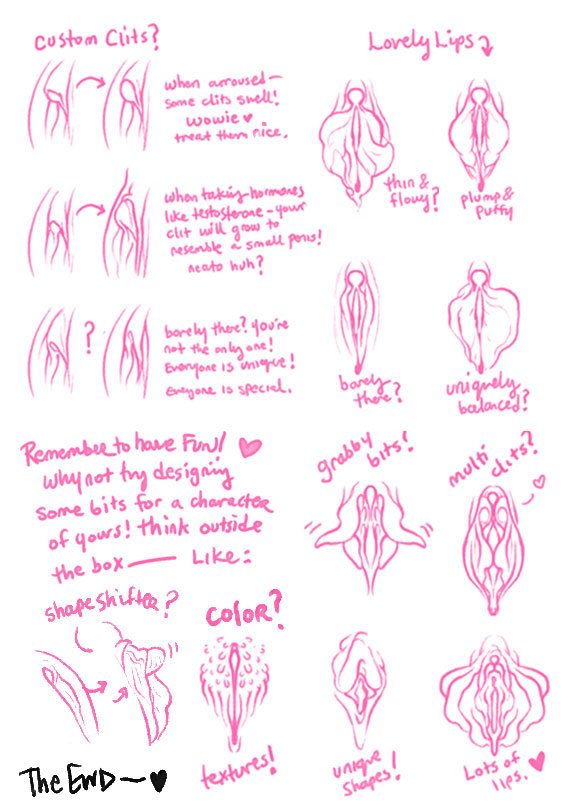 Custom Clits?
when arroused—
some clits swell!
wowie ♥
treat them nice.
when taking hormones
like testosterone – your
clit will grow to
resemble a small penis!
neato huh?
?
barely there? you're
not the only one!
Everyone is unique!
Everyone is special.
Lovely Lips
thin &
flowy?
plump &
puffy
barely
there?
uniquely
balanced?
Remember to have Fun!
why not try designing
some bits for a character
of yours! think outside
the box —— Like:
grabby
bits!
multi
clits?
shapeshifter?
color?
textures!
unique
shapes!
Lots of
lips.
The End —